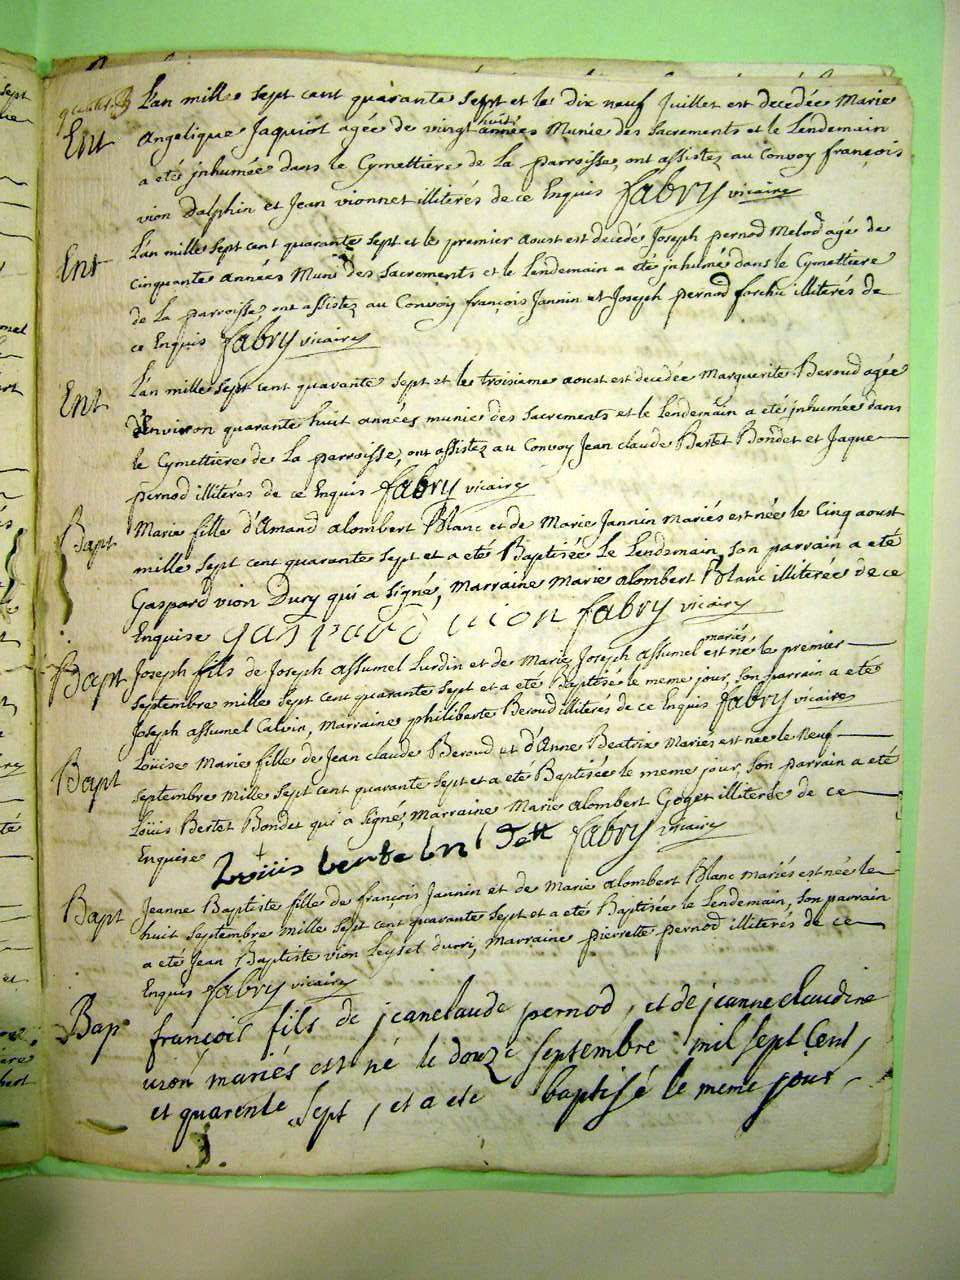 Ent L'an mille sept cent quarante sept et le dix neuf Juillet est decedée Marie
Angelique Jaquiot agée de vingt huit années Munie des Sacrements et le Lendemain
a eté jnhumée dans le Cymettiere de La parroisse, ont assistez au Convoy françois
vion Dalphin et Jean vionnet illiterés de ce Enquis fabry vicaire
Ent L'an mille sept cent quarante sept et le premier aoust est decedé Joseph pernod Melod agé de
cinquante années Muni des Sacrements et le Lendemain a eté jnhumé dans le Cymettiere
de La parroisse, ont assistez au Convoy françois Jannin et Joseph pernod forchu illiterés de
ce Enquis fabry vicaire
Ent L'an mille sept cent quarante sept et le troisiame aoust est decedée Marguerite Beroud agée
d'environ quarante huit années munie des Sacrements et le Lendemain a eté jnhumée dans
le Cymettiere de La parroisse, ont assistez au Convoy Jean claude Bertet Bondet et Jaque
pernod illiterés de ce Enquis fabry vicaire
Bapt Marie fille d'Amand alombert Blanc et de Marie Jannin mariés est née le Cinq aoust
mille sept cent quarante sept et a eté Baptisée Le Lendemain, Son parrain a eté
Gaspard vion Dury qui a signé, marraine Marie alombert Blanc illiterée de ce
Enquise gaspard vion fabry vicaire
Bapt Joseph fils de Joseph assumel Lurdin et de Marie Joseph assumel mariés est né le premier
septembre mille sept cent quarante sept et a eté Baptisé le meme jour, Son parrain a eté
Joseph assumel Calvin, marraine philiberte Beroud illiterés de ce Enquis fabry vicaire
Bapt Loüise Marie fille de Jean claude Beroud et d'Anne Beatrix Mariés est née le neuf
septembre mille sept cent quarante sept et a eté Baptisée le meme jour, Son parrain a eté
Loüis Bertet Bondet qui a signé, marraine Marie alombert Goget illiterée de ce
Enquise Loüis fabry vicaire
Bapt Jeanne Baptiste fille de françois Jannin et de Marie alombert Blanc mariés est née le
huit septembre mille sept cent quarante sept et a eté Baptisée le Lendemain, Son parrain
a eté Jean Baptiste vion Leyset durri, marraine pierrette pernod illiterés de ce
Enquis fabry vicaire
Bap françois fils de jeanclaude pernod, et de jeanne claudine
vion mariés est né le douze septembre mil sept Cent,
et quarente sept, et a eté baptisé le meme jour,